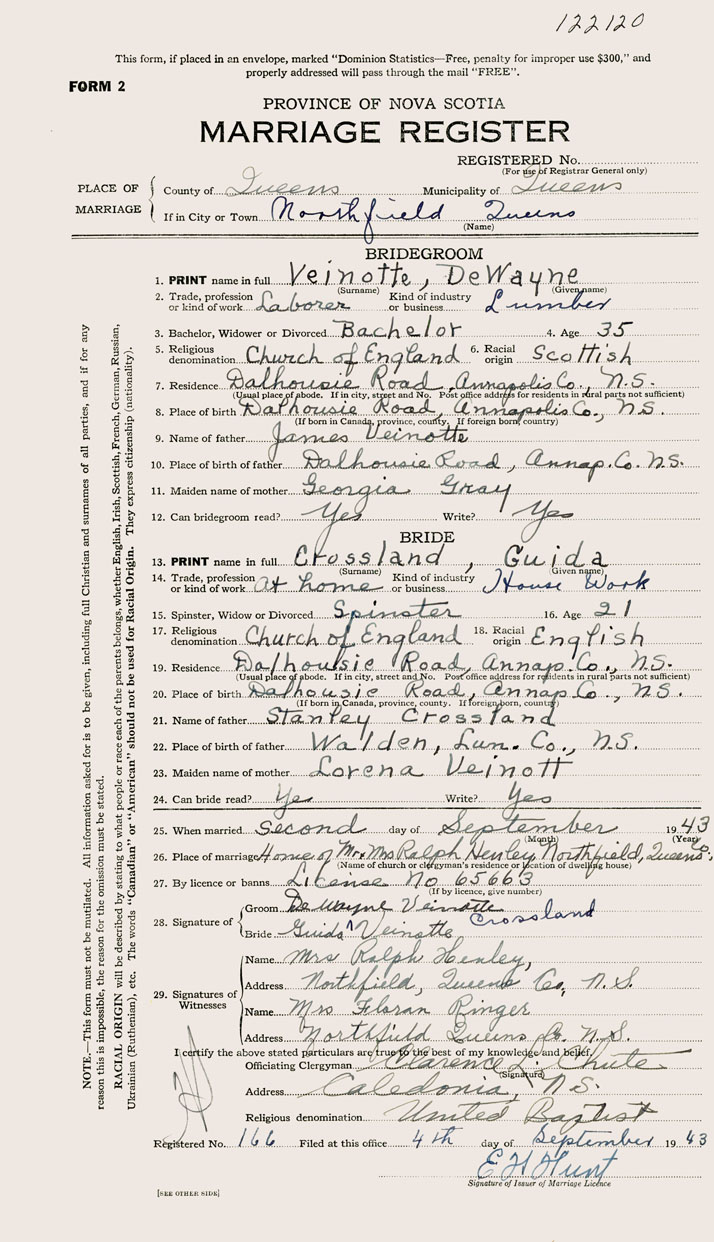 122120
This form, if placed in an envelope, marked "Dominion Statistics—Free, penalty for improper use $300," and
properly addressed will pass through the mail "FREE".
FORM 2
PROVINCE OF NOVA SCOTIA
MARRIAGE REGISTER
REGISTERED No.
(For use of Registrar General only)
PLACE OF MARRIAGE
County of Queens Municipality of Queens
If in City or Town Northfield Queens
(Name)
BRIDEGROOM
1. PRINT name in full Veinotte, DeWayne
(Surname) (Given name)
2. Trade, profession or kind of work Laborer Kind of industry or business Lumber
3. Bachelor, Widower or Divorced Bachelor 4. Age 35
5. Religious denomination Church of England 6. Racial origin Scottish
7. Residence Dalhousie Road, Annapolis Co., N.S.
(Usual place of abode. If in city, street and No. Post office address for residents in rural parts not sufficient)
8. Place of birth Dalhousie Road, Annapolis Co., N.S.
(If born in Canada, province, county. If foreign born, country)
9. Name of father James Veinotte
10. Place of birth of father Dalhousie Road, Annap. Co. N.S.
11. Maiden name of mother Georgia Gray
12. Can bridegroom read? Yes Write? Yes
BRIDE
13. PRINT name in full Crossland, Guida
(Surname) (Given name)
14. Trade, profession or kind of work at home Kind of industry or business House Work
15. Spinster, Widow or Divorced Spinster 16. Age 21
17. Religious denomination Church of England 18. Racial origin English
19. Residence Dalhousie Road, Annap. Co., N.S.
(Usual place of abode. If in city, street and No. Post office address for residents in rural parts not sufficient)
20. Place of birth Dalhousie Road, Annap. Co., N.S.
(If born in Canada, province, county. If foreign born, country)
21. Name of father Stanley Crossland
22. Place of birth of father Walden, Lun. Co., N.S.
23. Maiden name of mother Lorena Veinott
24. Can bride read? Yes Write? Yes
25. When married Second day of September 1943
(Month) (Year)
26. Place of marriage Home of Mr. & Mrs Ralph Henley, Northfield, Queens Co.
(Name of church or clergyman's residence or location of dwelling house)
27. By licence or banns License No 65663
(If by licence, give number)
28. Signature of
Groom DeWayne Veinotte
Crossland
Bride Guida ^ Veinotte
29. Signatures of Witnesses
Name Mrs Ralph Henley,
Address Northfield, Queens Co, N.S.
Name Mrs Floran Ringer
Address Northfield Queens Co. N.S.
I certify the above stated particulars are true to the best of my knowledge and belief.
Officiating Clergyman Clarence L. Chute
(Signature)
Address Caledonia, N.S.
Religious denomination United Baptist
Registered No. 166 Filed at this office 4th day of September 1943
E H Hunt
Signature of Issuer of Marriage Licence
[SEE OTHER SIDE]
NOTE.—This form must not be mutilated. All information asked for is to be given, including full Christian and surnames of all parties, and if for any
reason this is impossible, the reason for the omission must be stated.
RACIAL ORIGIN will be described by stating to what people or race each of the parents belongs, whether English, Irish, Scottish, French, German, Russian,
Ukrainian (Ruthenian), etc. The words "Canadian" or "American" should not be used for Racial Origin. They express citizenship (nationality).